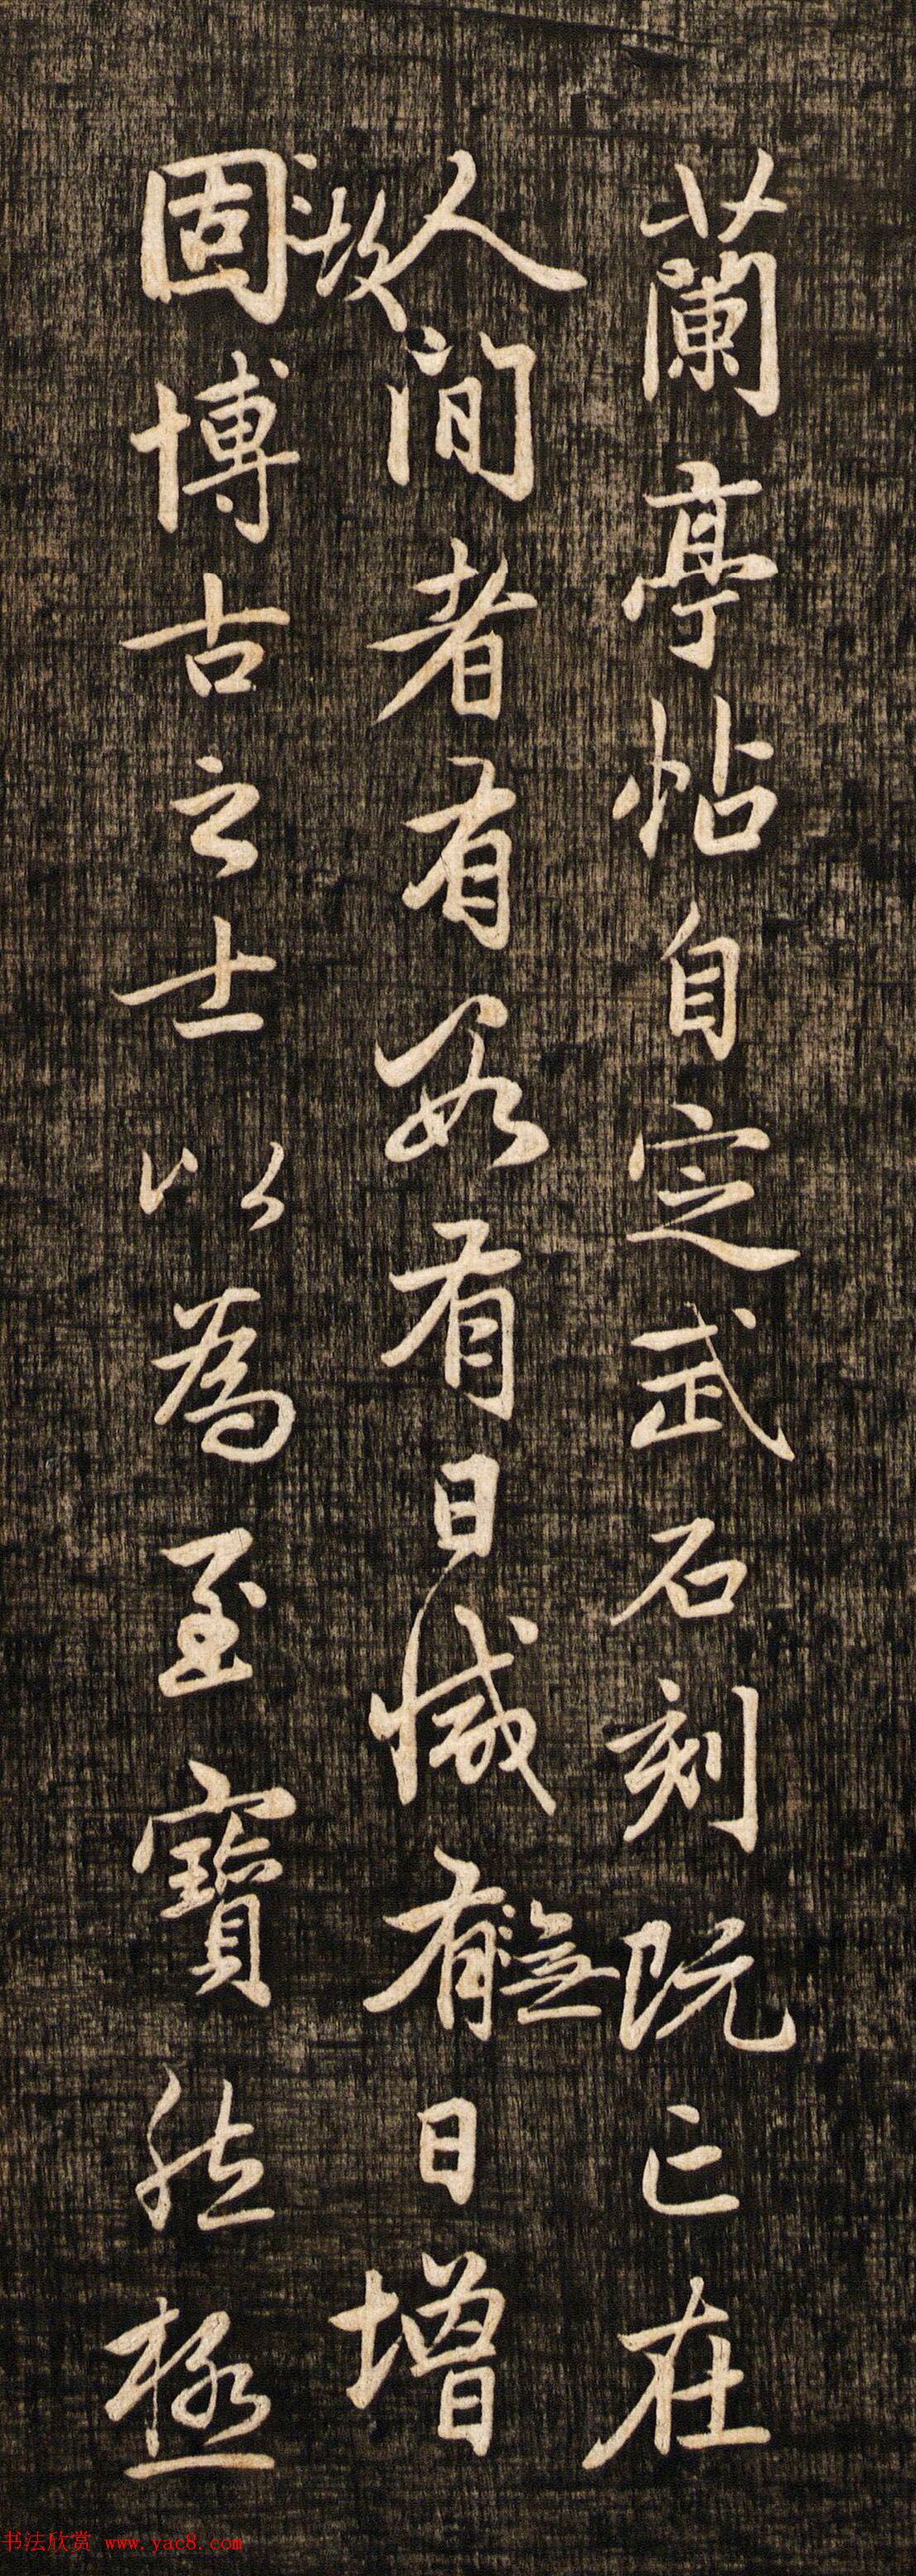 蘭亭帖自定武石刻既亡在
人間者有數有日減有無日增故
固博古之士以為至寶然極
书法欣赏 www.yac8.com